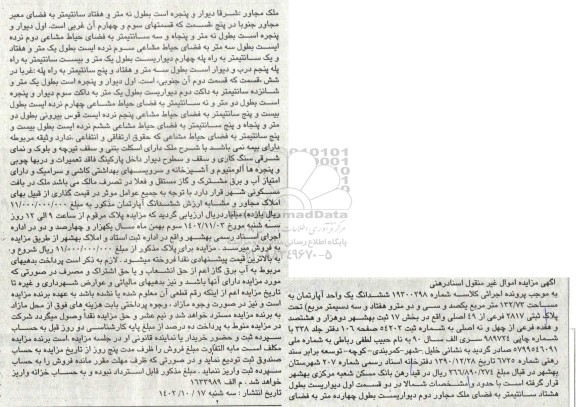 آگهی مزایده اموال غیر منقول اسنادرهنی
به موجب پرونده اجرائی کلاسه شماره ۱۹۳۰۰۲۹۸ ششدانگ یک واحد آپارتمان به
مساحت ۱۳۲/۷۳ متر مربع یکصد و سی و دو متر و هفتاد و سه دسیمتر مربع) تحت
پلاک ثبتی ۲۸۱۷ فرعی از ۴۹ اصلی واقع در بخش ۱۷ ثبت بهشهر دوهزار و هشتصد
و هفده فرعی از چهل و نه اصلی به شماره ثبت ۵۴۲۰۲ صفحه ۱۰۶ دفتر جلد ۳۳۸ با
شماره چاپی ۹۸۹۷۲۴ سری الف سال ۹۰ به نام حبیب لطفی رباطی به شماره ملی
۵۷۹۹۵۴۶۰۹۱ صادر گردید به نشانی خلیل -شهر-کمربندی- کوچه- توسعه برابر سند
رهنی شماره ۶۷۲۵ تاریخ ۱۳۹۰/۱۲/۲۸ دفترخانه اسناد رسمی شماره ۲۰۷ شهرستان
بهشهر در قبال مبلغ ۳۶۶/۸۹۰/۲۷۴ ریال در قید رهن بانک مسکن شعبه مرکزی بهشهر
قرار گرفته است با حدود و مشخصات شمالا در دو قسمت اول دیواریست بطول
هشتاد سانتیمتر به فضای ملک مجاور دوم دیواریست بطول چهارده متر به فضای
ملک مجاور ،شرقا دیوار و پنجره است بطول نه متر و هفتاد سانتیمتر به فضای معبر
مجاور جنوبا در پنج ،قسمت که قسمتهای سوم و چهارم آن غربی است. اول دیوار و
پنجره است بطول نه متر و پنجاه و سه سانتیمتر به فضای حیاط مشاعی دوم نرده
ایست بطول سه متر به فضای حیاط مشاعی سوم نرده ایست بطول یک متر و هفتاد
و یک سانتیمتر به راه پله چهارم دیواریست بطول یک متر و بیست سانتیمتر به راه
پله پنجم درب و دیوار است بطول سه متر و هفتاد و پنج سانتیمتر به راه پله :غربا در
شش ،قسمت که قسمت دوم آن جنوبی، است. اول دیوار و پنجره است بطول یک متر و
شانزده سانتیمتر به داکت دوم دیواریست بطول یک متر به داکت سوم دیوار و پنجره
است بطول دو متر و نه سانتیمتر به فضای حیاط مشاعی چهارم نرده ایست بطول
بیست و پنج سانتیمتر به فضای حیاط مشاعی پنجم نرده ایست قوس بیرونی بطول دو
متر و پنجاه و پنج سانتیمتر به فضای حیاط مشاعی ششم نرده ایست بطول بیست و
پنج سانتیمتر به فضای حیاط مشاعی که حقوق ارتفاقی و انتفاعی ،ندارد وثیقه مربوطه
دارای بیمه نمی باشد با شرح ملک دارای اسکلت بتنی و سقف تیرچه و بلوک و نمای
شرقی سنگ کاری و سقف و سطوح دیوار داخل پارکینگ فاقد تعمیرات و دربها چوبی
و پنجره ها آلومنیوم و آشپزخانه و سرویسهای بهداشتی کاشی و سرامیک و دارای
امتیاز آب و برق مشترک و گاز مستقل و فعلا در تصرف مالک می باشد ملک در بافت
مسکونی شهر قرار دارد با توجه به جمیع عوامل موثر در قیمت گذاری از قبیل بهای
املاک مجاور و مشابه ارزش ششدانگ آپارتمان مذکور به مبلغ ۱۱/۰۰۰/۰۰۰/۰۰۰
ریال یازده) میلیاردریال ارزیابی گردید که مزایده پلاک مرقوم از ساعت ۹ الی ۱۲ روز
سه شنبه مورخ ۱۴۰۲/۱۱/۰۳ سوم بهمن ماه سال یکهزار و چهارصد و دو در اداره
اجرای اسناد رسمی بهشهر واقع در اداره ثبت اسناد و املاک بهشهر از طریق مزایده
به فروش میرسد . مزایده برای پلاک مذکور از مبلغ ۱۱/۰۰۰/۰۰۰/۰۰۰ ریال شروع و
به بالاترین قیمت پیشنهادی نقدا فروخته میشود . لازم به ذکر است پرداخت بدهیهای
مربوط به آب برق گاز اعم از حق انشعاب و یا حق اشتراک و مصرف در صورتی که
مورد مزایده دارای آنها باشد و نیز بدهیهای مالیاتی و عوارض شهرداری و غیره تا
تاریخ مزایده اعم از اینکه رقم قطعی آن معلوم شده یا نشده باشد به عهده برنده مزایده
است و نیز در صورت وجوه مازاد ، وجوه پرداختی بابت هزینه های فوق از محل مازاد
به برنده مزایده مسترد خواهد شد و نیم عشر و حق مزایده نقداً وصول میگردد شرکت
در مزایده منوط به پرداخت ده درصد از مبلغ پایه کارشناسی دو روز قبل به حساب
سپرده ثبت و حضور خریدار یا نماینده قانونی او در جلسه مزایده است. برنده مزایده
مکلف است مابه التفاوت مبلغ فروش را ظرف مدت پنج روز از تاریخ مزایده به حساب
صندوق ثبت تودیع نماید و در صورتی که ظرف مهلت مقرر مانده فروش را به حساب
سپرده ثبت واریز ننماید. مبلغ مذکور قابل استرداد نبوده و به حساب خزانه واریز
خواهد شد. م الف ۱۶۳۳۹۸۹
تاریخ انتشار : سه شنبه ۱۷ / ۱۴۰۲/۱۰